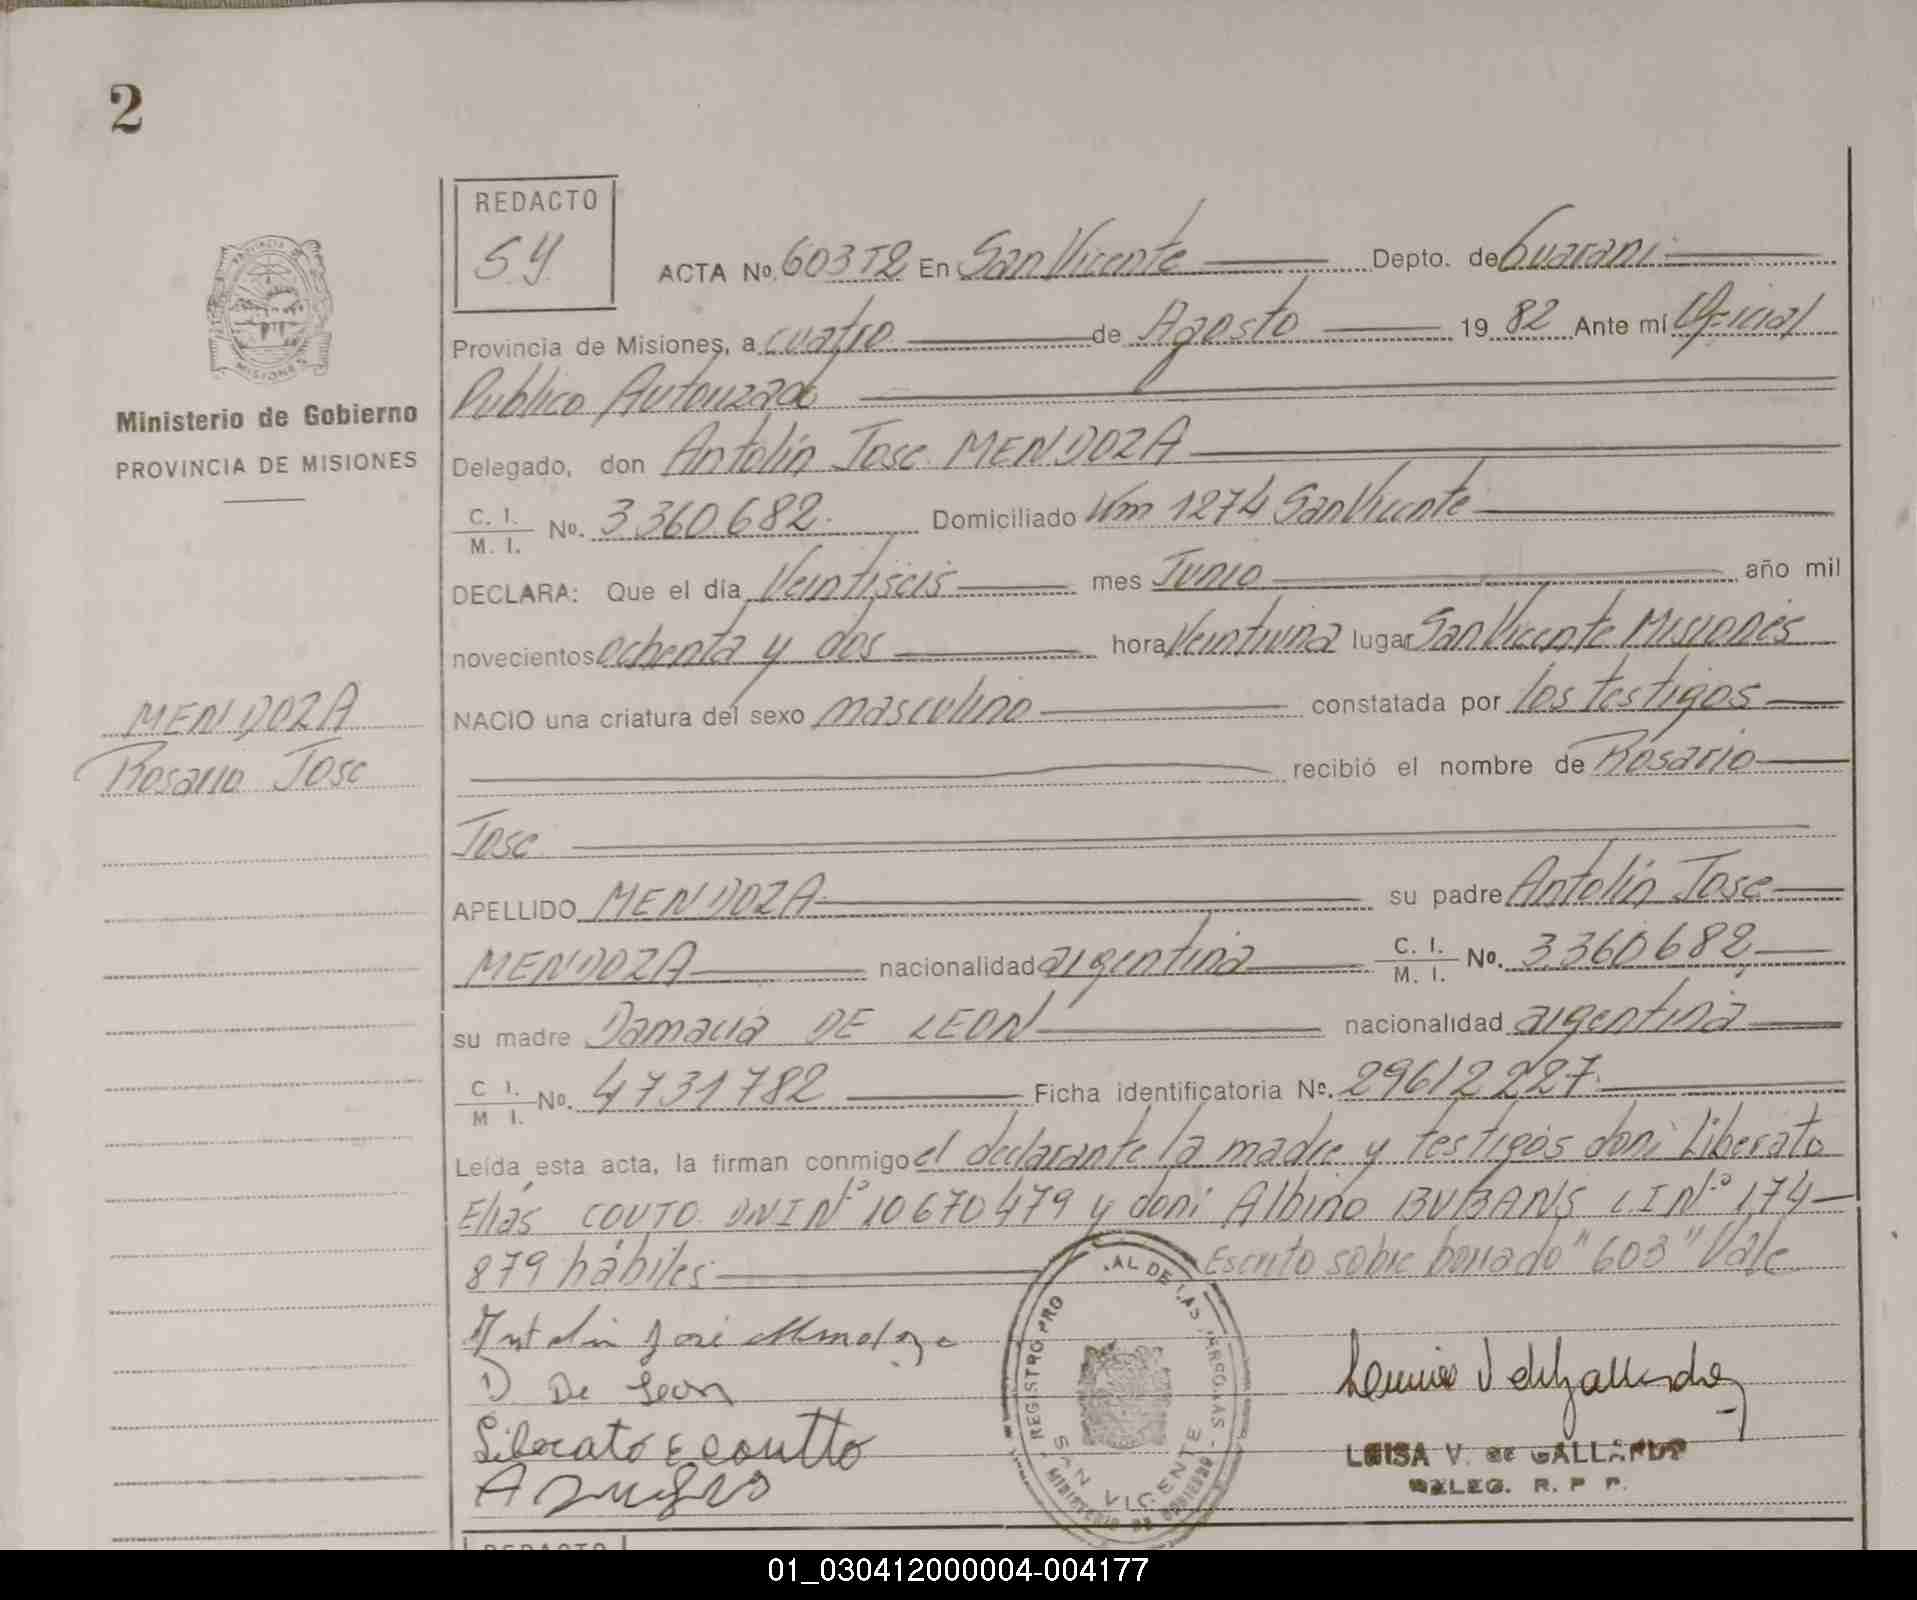 2
REDACTO
S.Y.
ACTA No. 603T2 En San Vicente Depto. de Guarani
Provincia de Misiones, a cuatro de Agosto 1982 Ante mí Oficial
Publico Autorizado
Delegado, don Antolin Jose MENDOZA
C. I. / M. I. No. 3360.682. Domiciliado Km 1274 San Vicente
DECLARA: Que el día Veintiseis mes Junio año mil
novecientos ochenta y dos hora Veintiuna lugar San Vicente Misiones
NACIO una criatura del sexo masculino constatada por los testigos
recibió el nombre de Rosario
Jose
APELLIDO MENDOZA su padre Antolin Jose
MENDOZA nacionalidad argentina C. I. / M. I. No. 3360682,
su madre Damacia DE LEON nacionalidad argentina
C I. / M I. No. 4731782 Ficha identificatoria No. 29612227.
Leída esta acta, la firman conmigo el declarante la madre y testigos don: Liberato
Elias COUTO DNI Nº 10670479 y don: Albino BUBANS C.I Nº 174-
879 hábiles Escrito sobre borrado "603" Vale
Antolin José Mendoza
D De Leon
Liberato E coutto
LUISA V. de GALLARDO
DELEG. R. P. P.
REGISTRO PRO AL DE LAS PERSONAS
SAN VICENTE
MINISTERIO DE GOBIERNO
PROVINCIA DE
MISIONES
Ministerio de Gobierno
PROVINCIA DE MISIONES
MENDOZA
Rosario Jose
REDACTO
01_030412000004-004177